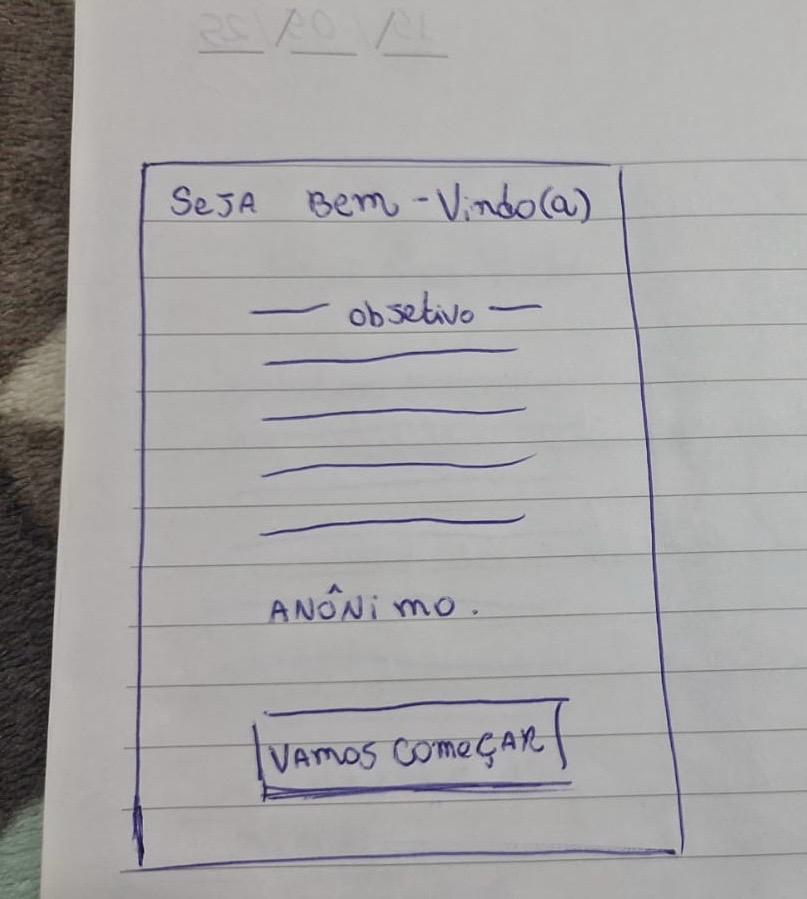 19/09/25
SeJA Bem-Vindo(a)
— obsetivo —
ANÔNimo.
VAmos começAR